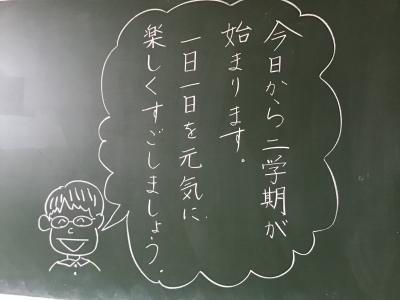 今日から二学期が
始まります。
一日一日を元気に
楽しくすごしましょう。